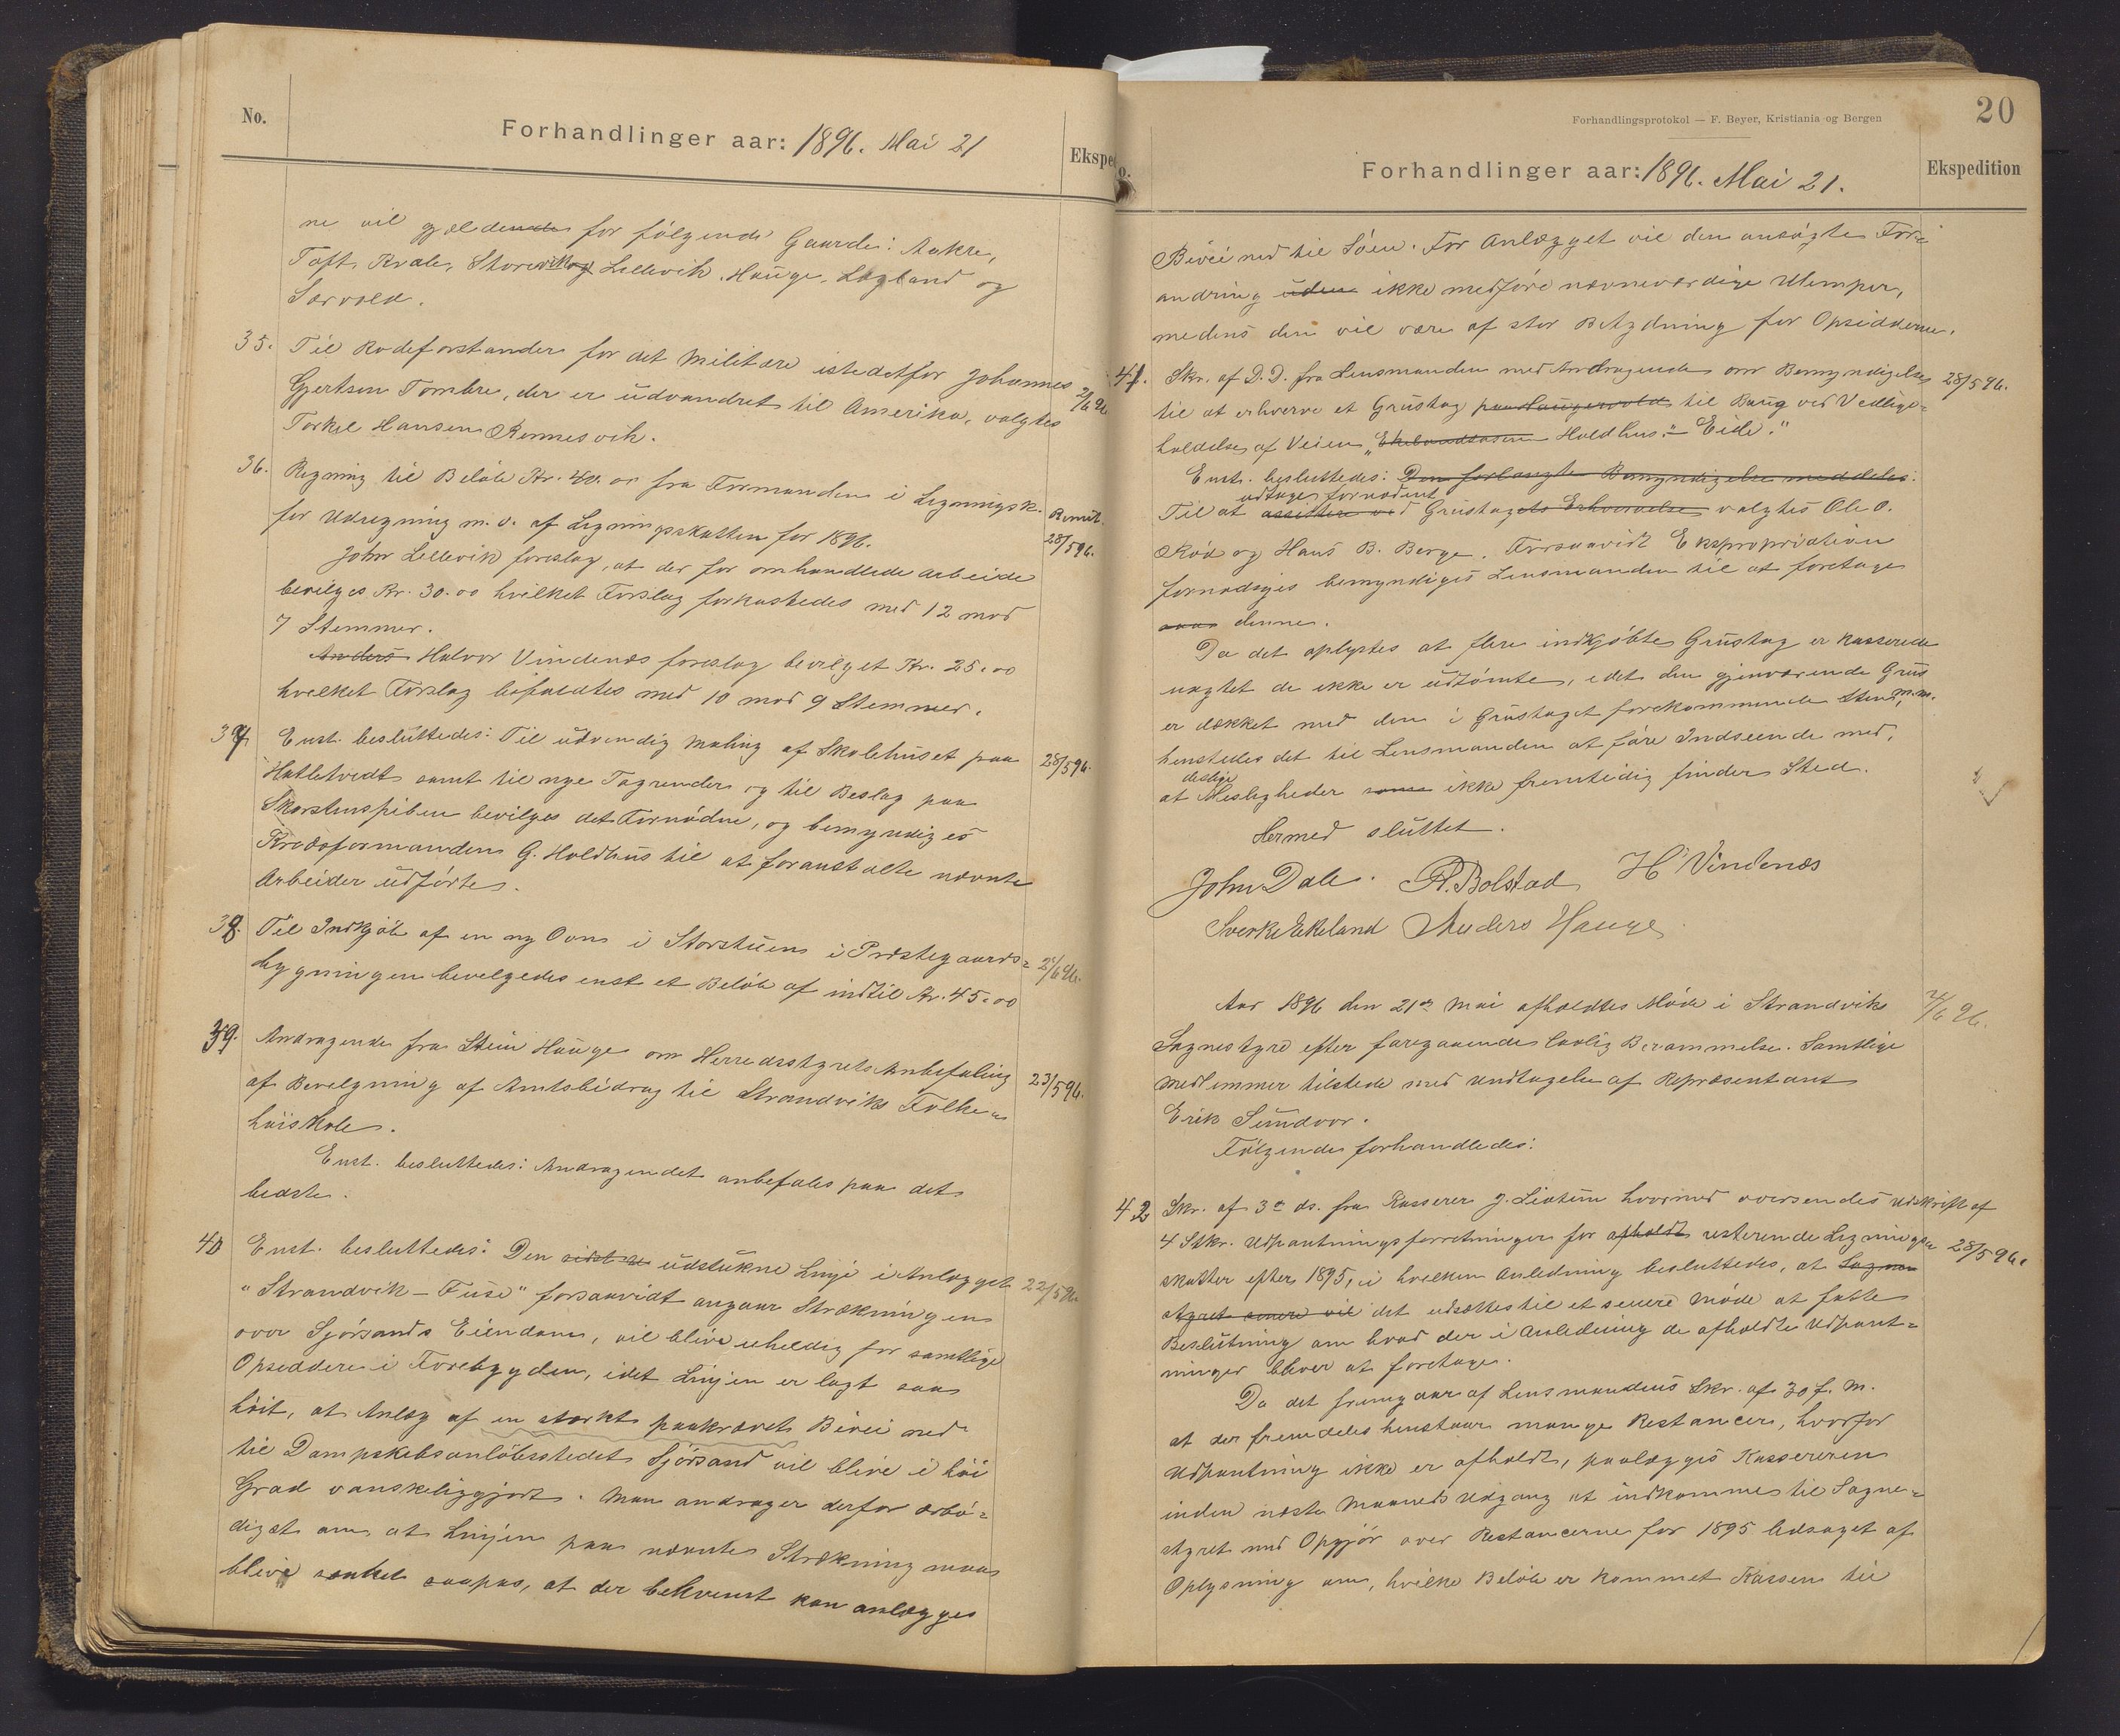 No.
Forhandlinger aar: 1896. Mai 21
Ekspe
ne vil gjældende for følgende Gaarde: Aakre,
Toft, Kvale, Storevik og Lillevik, Hauge, Lægland og
Sørvold.
35. Til Rodeforstander for det Militære istedetfor Johannes
Gjertsen Tombre, der er udvandret til Amerika, valgtes
Torkel Hansen Rennesvik.
2/6 96
36. Regning til Beløb Kr. 40.00 fra Formanden i Ligningsk.
for Udregning m.v. af Ligningsskatten for 1896.
Remit.
28/5 96.
John Lillevik foreslog, at der for omhandlede Arbeide
bevilges Kr. 30.00 hvilket Forslag forkastedes med 12 mod
7 Stemmer.
Anders Halvor Vindenæs foreslog bevilget Kr. 25.00
hvilket Forslag bifaldtes med 10 mod 9 Stemmer.
37 Enst. besluttedes: Til udvendig Maling af Skolehuset paa
Hatletvedt samt til nye Tagrender og til Beslag paa
Skorstenspiben bevilges det Fornødne, og bemyndiges
Kredsformanden G. Holdhus til at foranstalte nævnte
Arbeider udførte.
28/5 96.
38. Til Indkjøb af en ny Ovn i Storstuen i Præstegaards=
bygningen bevilgedes enst et Beløb af indtil Kr. 45.00
2/6 96.
39. Andragende fra Stein Hauge om Herredsstyrets Anbefaling
af Bevilgning af Amtsbidrag til Strandviks Folke=
høiskole.
23/5 96.
Enst. besluttedes: Andragendet anbefales paa det
bedste.
40 Enst. besluttedes: Den sidst udstukne Linje i Anlægget
"Strandvik – Fuse" forsaavidt angaar Strækningen
over Sjørsands Eiendom, vil blive uheldig for samtlige
Opsiddere i Forebygden, idet Linjen er lagt saa
høit, at Anlæg af en stærkt paakrævet Bivei ned
til Dampskibsanløbsstedet Sjørsand vil blive i høi
Grad vanskeliggjort. Man andrager derfor ærbø=
digst om at Linjen paa nævnte Strækning maa
blive sænket saapas, at der bekvemt kan anlægges
22/5 96
20
Forhandlingsprotokol — F. Beyer, Kristiania og Bergen
o.
Forhandlinger aar: 1896. Mai 21.
Ekspedition
Bivei ned til Søen. For Anlægget vil den ansøgte For=
andring uden ikke medføre nævneværdige Ulemper,
medens den vil være af stor Betydning for Opsidderne.
41. Skr. af D. D. fra Lensmanden med Andragende om Bemyndigelse
til at erhverve et Grustag paa Haugervold til Brug ved Vedlige=
holdelse af Veien "Ekelandsosen Holdhus" – Eide."
28/5 96.
Enst. besluttedes: Den forlangte Bemyndigelse meddeles.
udtage fornødent
Til at assistere ved Grustagets Erhvervelse valgtes Ole O.
Röd og Hans B. Berge. Forsaavidt Ekspropriation
fornødiges bemyndiges Lensmanden til at foretage
saa denne.
Da det oplystes at flere indkjøbte Grustag er kasserede
uagtet de ikke er udtømte, idet den gjenværende Grus
er dækket med den i Grustaget forekommende Sten, m.m.
henstedes det til Lensmanden at føre Indseende med,
deslige
at Mesligheder som ikke fremtidig finder Sted.
Hermed sluttet.
John Dale. R. Bolstad H Vindenæs
Sverke Ekeland Anders Hauge
Aar 1896 den 21de Mai afholdtes Møde i Strandvik
Sognestyre efter foregaaende lovlig Berammelse. Samtlige
Medlemmer tilstede med Undtagelse af Repræsentant
Erik Sundvor.
2/6 96.
Følgende forhandledes:
42 Skr. af 3de ds. fra Kasserer J. Lixtun hvormed oversendes Udskrift af
4 Stkr. Udpantningsforretninger for afholdt resterende Lignings=
skatter efter 1895, i hvilken Anledning besluttedes, at Sogne=
styret senere vil det udsættes til et senere Møde at fatte
Beslutning om hvad der i Anledning de afholdte Udpant=
ninger bliver at foretage.
28/5 96.
Da det fremgaar af Lensmandens Skr. af 30 f. M.
at der fremdeles henstaar mange Restancer, hvorfor
Udpantning ikke er afholdt, paalægges Kassereren
inden næste Maaneds Udgang at indkomme til Sogne=
styret med Opgjør over Restancerne for 1895 ledsaget af
Oplysning om, hvilke Beløb er kommet Kassen til